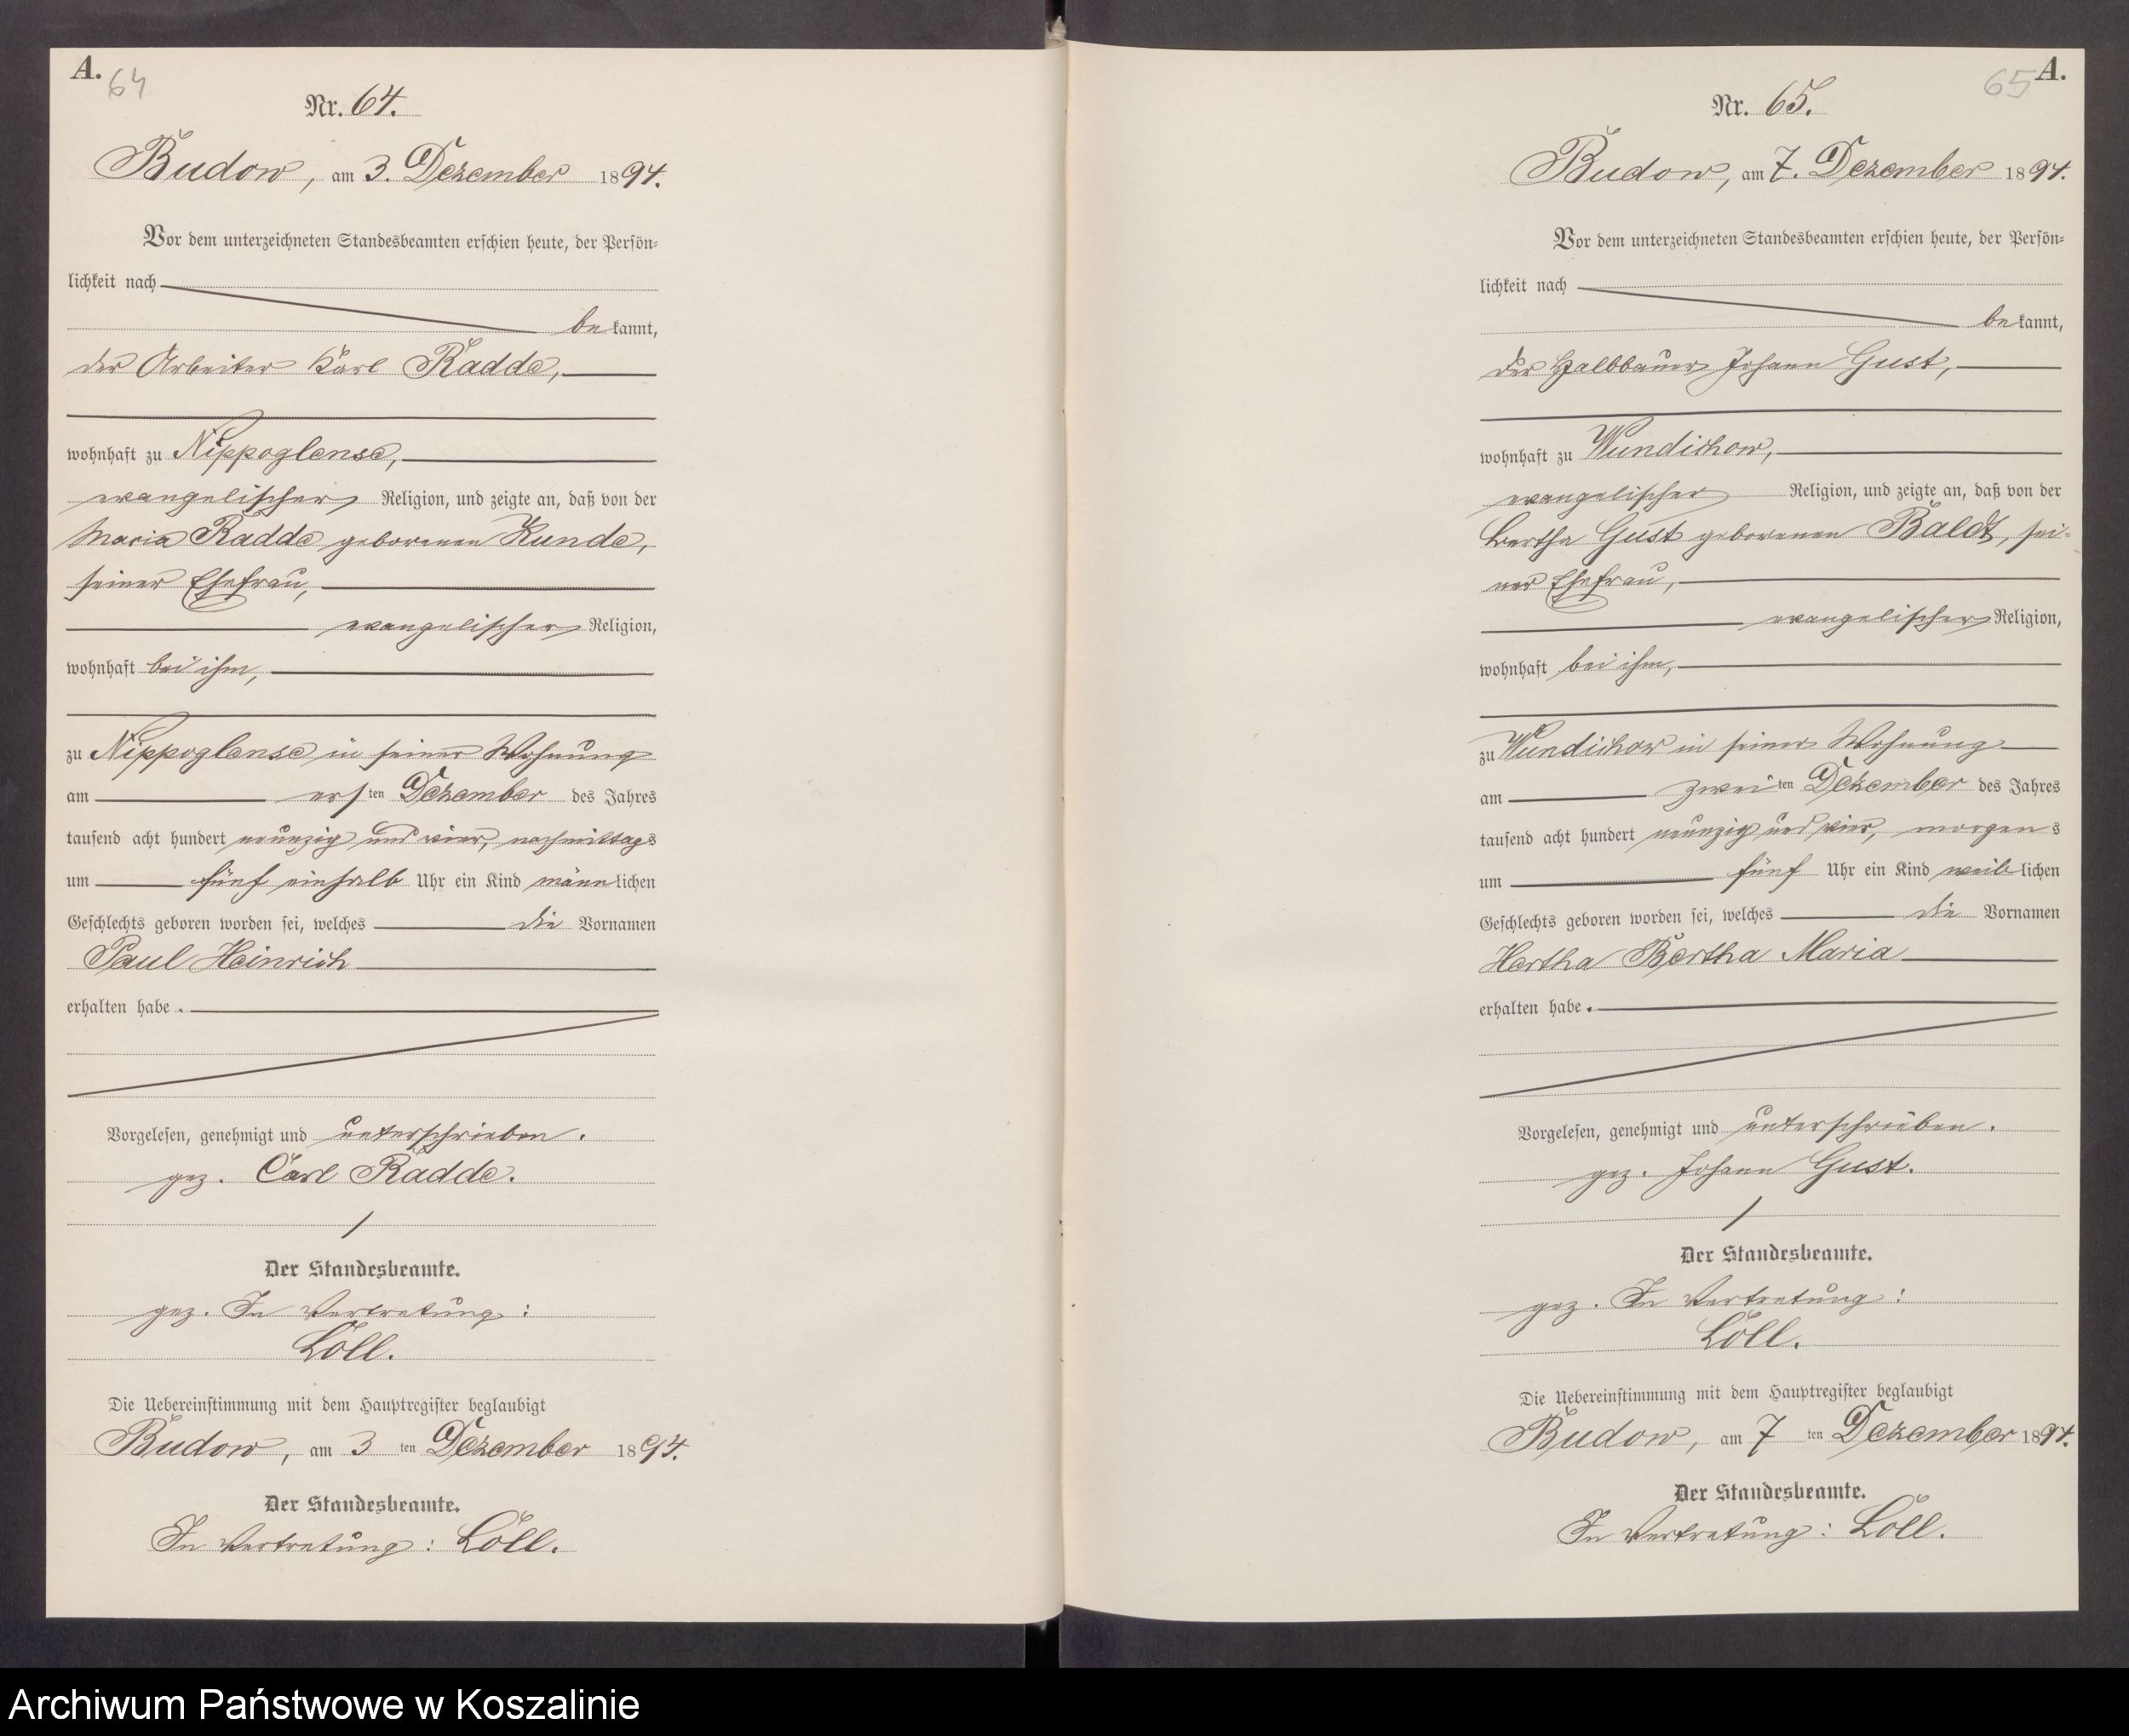 A.
64
Nr. 64.
Budow, am 3. Dezember 1894.
Vor dem unterzeichneten Standesbeamten erschien heute, der Persön-
lichkeit nach
bekannt,
der Arbeiter Karl Radde,
wohnhaft zu Nippoglense,
evangelischer Religion, und zeigte an, daß von der
Maria Radde geborenen Kunde,
seiner Ehefrau,
evangelischer Religion,
wohnhaft bei ihm,
zu Nippoglense in seiner Wohnung
am ersten Dezember des Jahres
tausend acht hundert neunzig und vier, nachmittags
um fünf einhalb Uhr ein Kind männlichen
Geschlechts geboren worden sei, welches die Vornamen
Paul Heinrich
erhalten habe.
Vorgelesen, genehmigt und unterschrieben.
gez. Carl Radde.
Der Standesbeamte.
gez. In Vertretung:
Löll.
Die Uebereinstimmung mit dem Hauptregister beglaubigt
Budow, am 3 ten Dezember 1894.
Der Standesbeamte.
In Vertretung: Löll.
65 A.
Nr. 65.
Budow, am 7. Dezember 1894.
Vor dem unterzeichneten Standesbeamten erschien heute, der Persön-
lichkeit nach
bekannt,
der Halbbauer Johann Gust,
wohnhaft zu Wundichow,
evangelischer Religion, und zeigte an, daß von der
Bertha Gust geborenen Baldt, sei-
ner Ehefrau,
evangelischer Religion,
wohnhaft bei ihm,
zu Wundichow in seiner Wohnung
am zweiten Dezember des Jahres
tausend acht hundert neunzig und vier, morgens
um fünf Uhr ein Kind weiblichen
Geschlechts geboren worden sei, welches die Vornamen
Hertha Bertha Maria
erhalten habe.
Vorgelesen, genehmigt und unterschrieben.
gez. Johann Gust.
Der Standesbeamte.
gez. In Vertretung:
Löll.
Die Uebereinstimmung mit dem Hauptregister beglaubigt
Budow, am 7 ten Dezember 1894.
Der Standesbeamte.
In Vertretung: Löll.
Archiwum Państwowe w Koszalinie